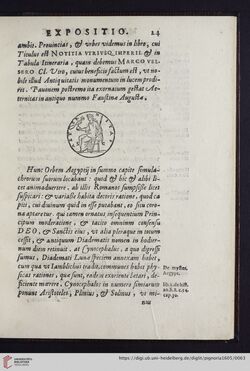 EXPOSITIO. 24
ambit. Prouincias, & vrbes videmus in libro, cui
Titulus est NOTITIA VTRIVSQ. IMPERII. & in
Tabula Itineraria, quam debemus MARCO VEL-
SERO Cl. Viro, cuius beneficio factum est, vt no-
bile illud Antiquitatis monumentum in lucem prodi-
rit. Pauonem postremo ita exornatum gestat Ae-
ternitas in antiquo nummo Faustinæ Augustæ,
Hunc Orbem Aegyptij in summo capite simula-
chrorum suorum locabant: quod & hic & alibi li-
cet animaduertere. ab illis Romanos sumpsisse licet
suspicari: & variasse habita deorum ratione. quod ca-
piti, cui diuinum quid in esse putabant, eo, seu coro-
na aptaretur. qui camen ornatus insequentium Prin-
cipum moderatione, & tacito omnium consensu
DEO, & Sanctis eius, vt alia pleraque in totum
cessit, & antiquum Diadematis nomen in hodier-
num diem retinuit. at Cynocephalus, a quo digressi
sumus, Diademati Lunæ speciem annexam habet,
cum qua vt Iamblichus tradit, communes habet phy-
sicas rationes, quæ sunt, exedere lætari, de-
ficiente mærere. Cynocephalos in numero simiarum
ponunt Aristoteles, Plinius, & Solinus, vt mi-
nus
De myster.
Aegypt.
cap. 30.
UNIVERSITÄTS-
BIBLIOTHEK
HEIDELBERG
https://digi.ub.uni-heidelberg.de/diglit/pignoria1605/0063